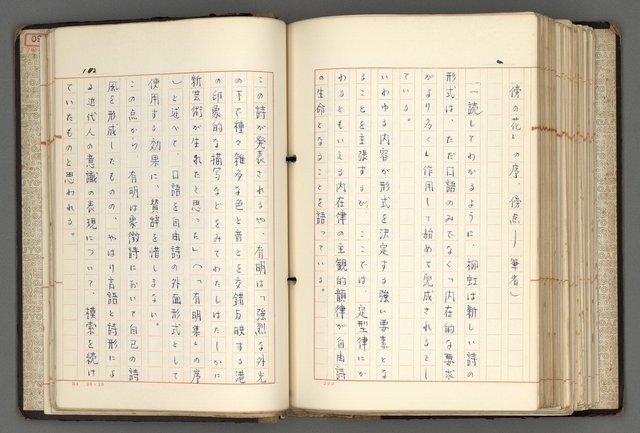 傍の花』の序、傍点―筆者)
「一読してわかるように、柳虹は新しい詩の
形式は、ただ口語のみでなく「内在的な要求
がより多く」作用して始めて完成されるとし
ている。
いわゆる内容が形式を決定する強い要素とな
ることを主張するが、ここでは、定型律にか
わるともいえる内在律の主観的韻律が自由詩
の生命となることを語っている。
この詩が発表されるや、有明は「強烈な外光
の下で種々雑多な色と音とを交錯反映する港
の印象的な描写などをみてわたしはたしかに
新芸術が生れたと思った」(『有明集』の序
)と述べて、口語を自由詩の外面形式として
使用する効果に、賛辞を惜しまない。
この点から、有明は象徴詩において自己の詩
風を形成したものの、やはり言語と詩形によ
る近代人の意識の表現について、模索を続け
ていたものと思われる。
102